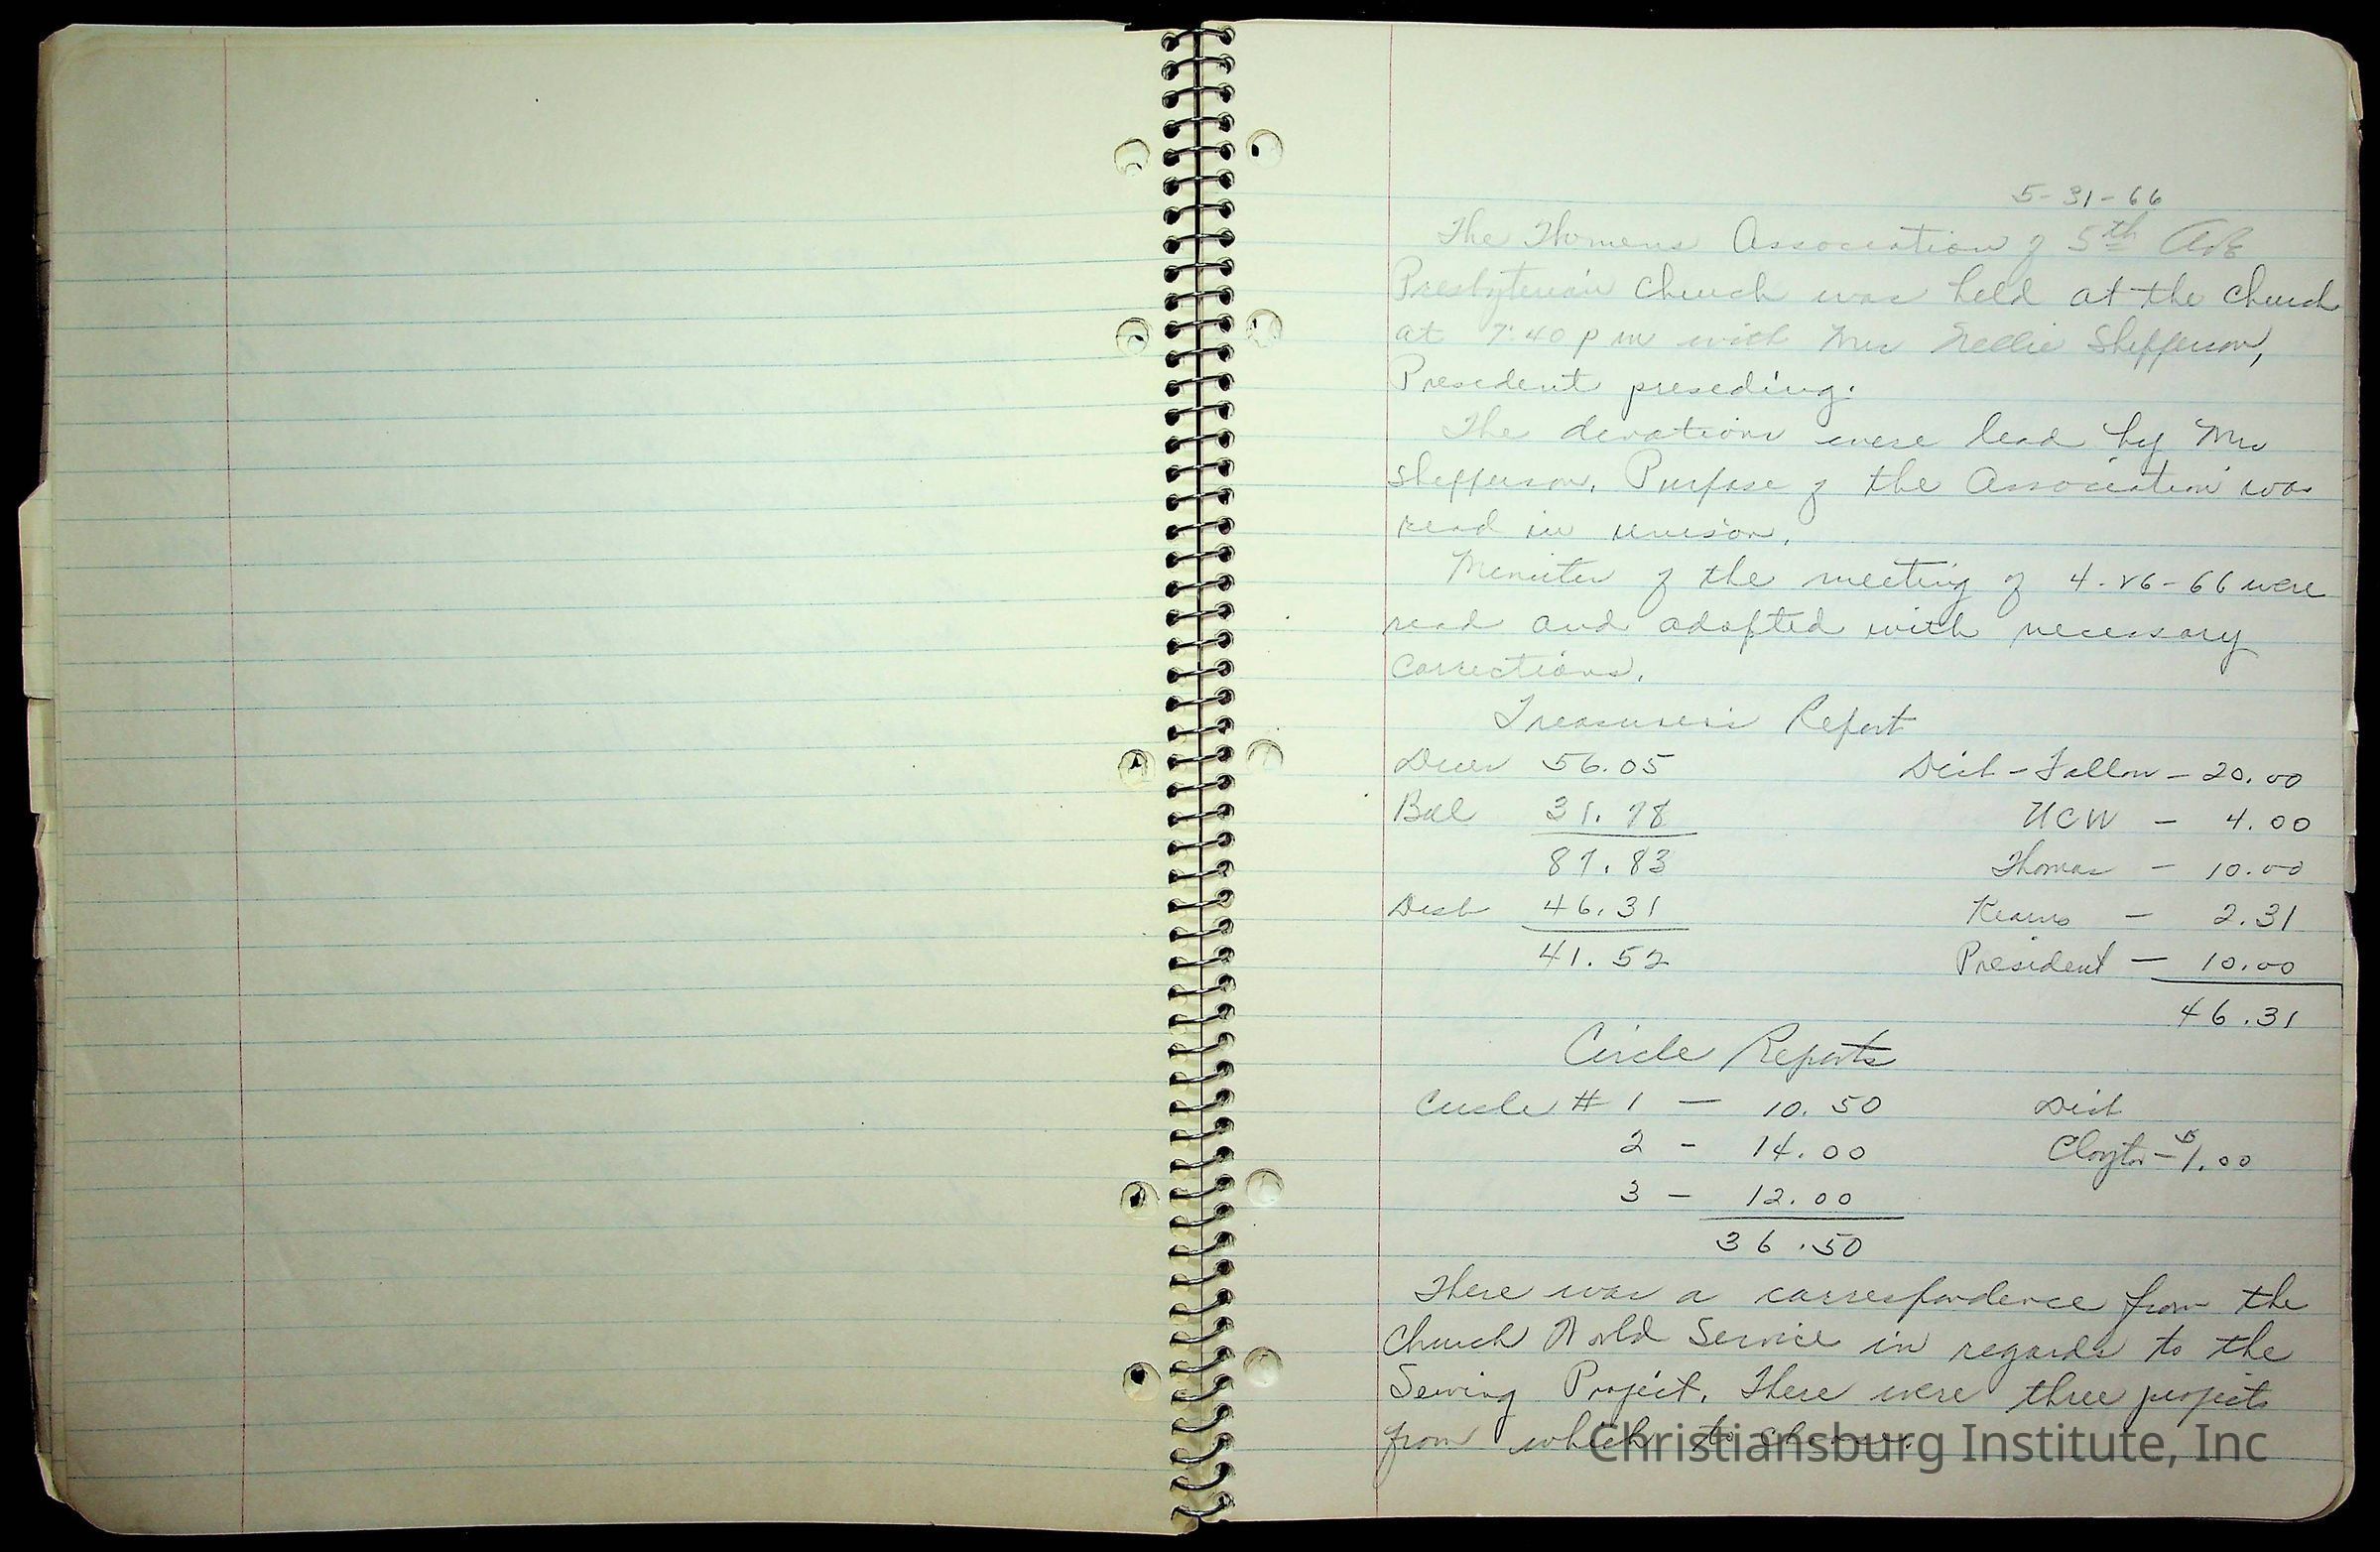 5-31-66
The Womens Association of 5th Ave
Presbyterian Church was held at the church
at 7:40 p m with Mrs Nellie Shefferson,
Presedent preseding.
The devotions were lead by Mrs
Shefferson. Purpose of the Association was
read in unison.
Menutes of the meeting of 4-26-66 were
read and adopted with necessary
corrections.
Treasurer's Report
Dues 56.05 Disb - Fallow - 20.00
Bal 31.78 UCW - 4.00
87.83 Thomas - 10.00
Disb 46.31 Kearns - 2.31
41.52 President - 10.00
46.31
Circle Reports
Circle # 1 - 10.50 Disb
2 - 14.00 Claytor - $1.00
3 - 12.00
36.50
There was a correspondence from the
Church World Service in regards to the
Sewing Project. There were three projects
from which to choose.
Christiansburg Institute, Inc